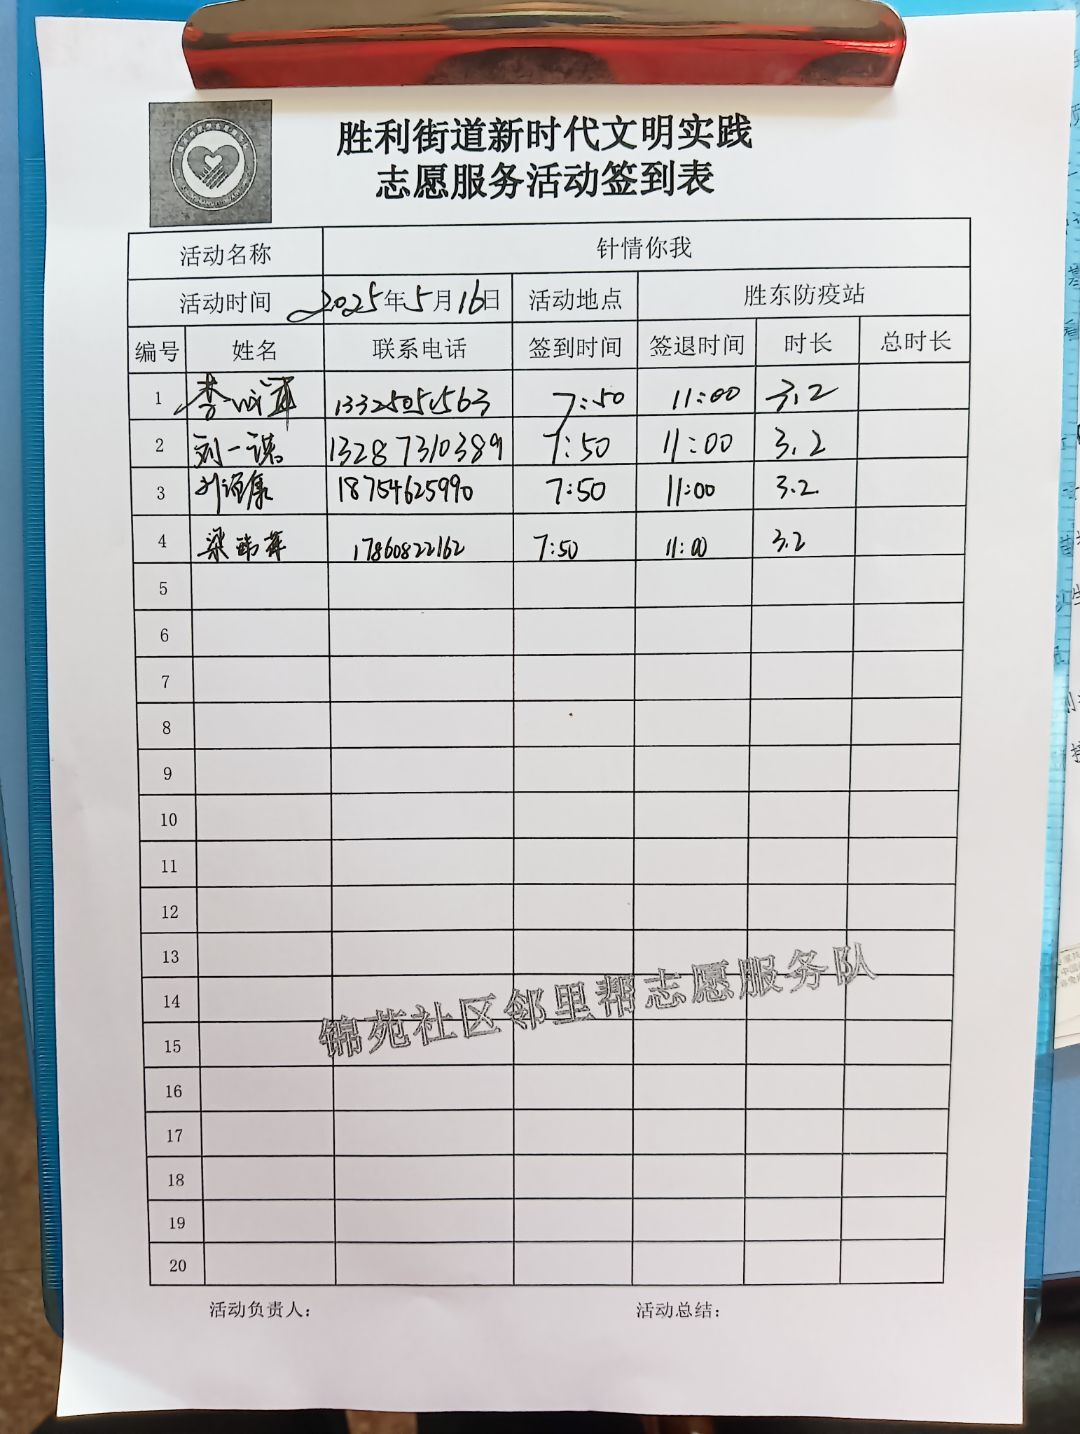 胜利街道新时代文明实践
志愿服务活动签到表
活动名称 针情你我
活动时间 2025年5月16日 活动地点 胜东防疫站
编号 姓名 联系电话 签到时间 签退时间 时长 总时长
1 李 7:50 11:00 3.2
2 刘一 13287310389 7:50 11:00 3.2
3 18754625990 7:50 11:00 3.2
4 梁 17860822162 7:50 11:00 3.2
5
6
7
8
9
10
11
12
13
14
15
16
17
18
19
20
锦苑社区邻里帮志愿服务队
活动负责人： 活动总结：